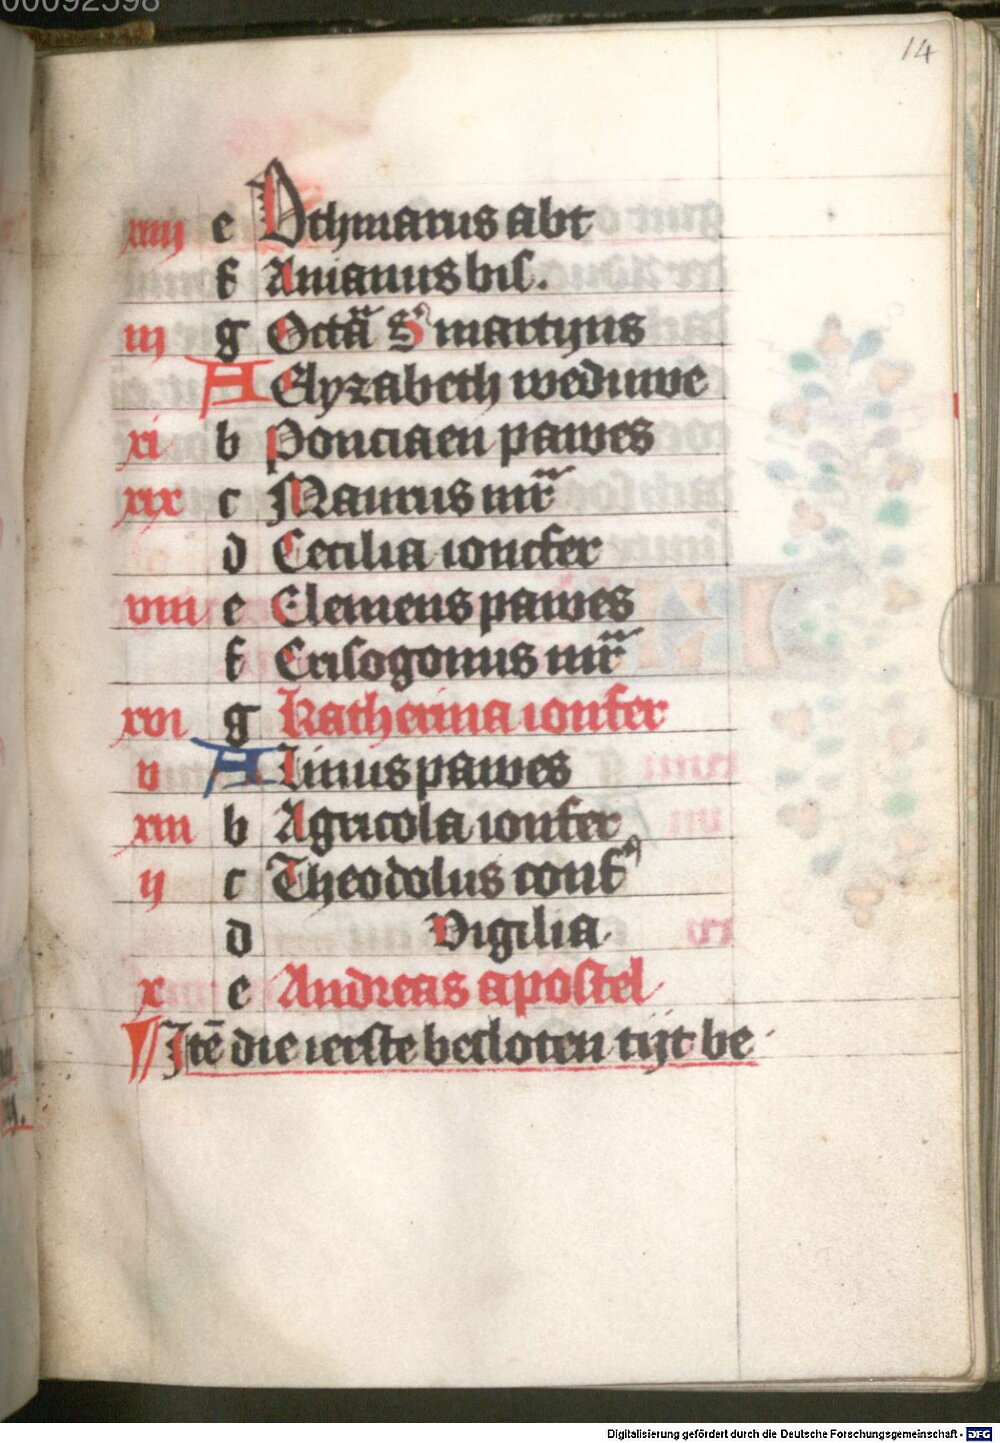 00092598
14
xiiij e Othmarus abt
f Anianus bis.
iij g Octā S' martijns
A Elyzabeth weduwe
xi b Ponciaen pawes
xix c Maurus mr̄
d Cecilia ioncfer
viii e Clemens pawes
f Crisogonus mr̄
xvi g Katherina ionfer
v A Linus pawes
xiii b Agricola ionfer
ij c Theodolus conf'
d Vigilia
x e Andreas apostel
¶ Itē die ierste besloten tijt be
Digitalisierung gefördert durch die Deutsche Forschungsgemeinschaft - DFG